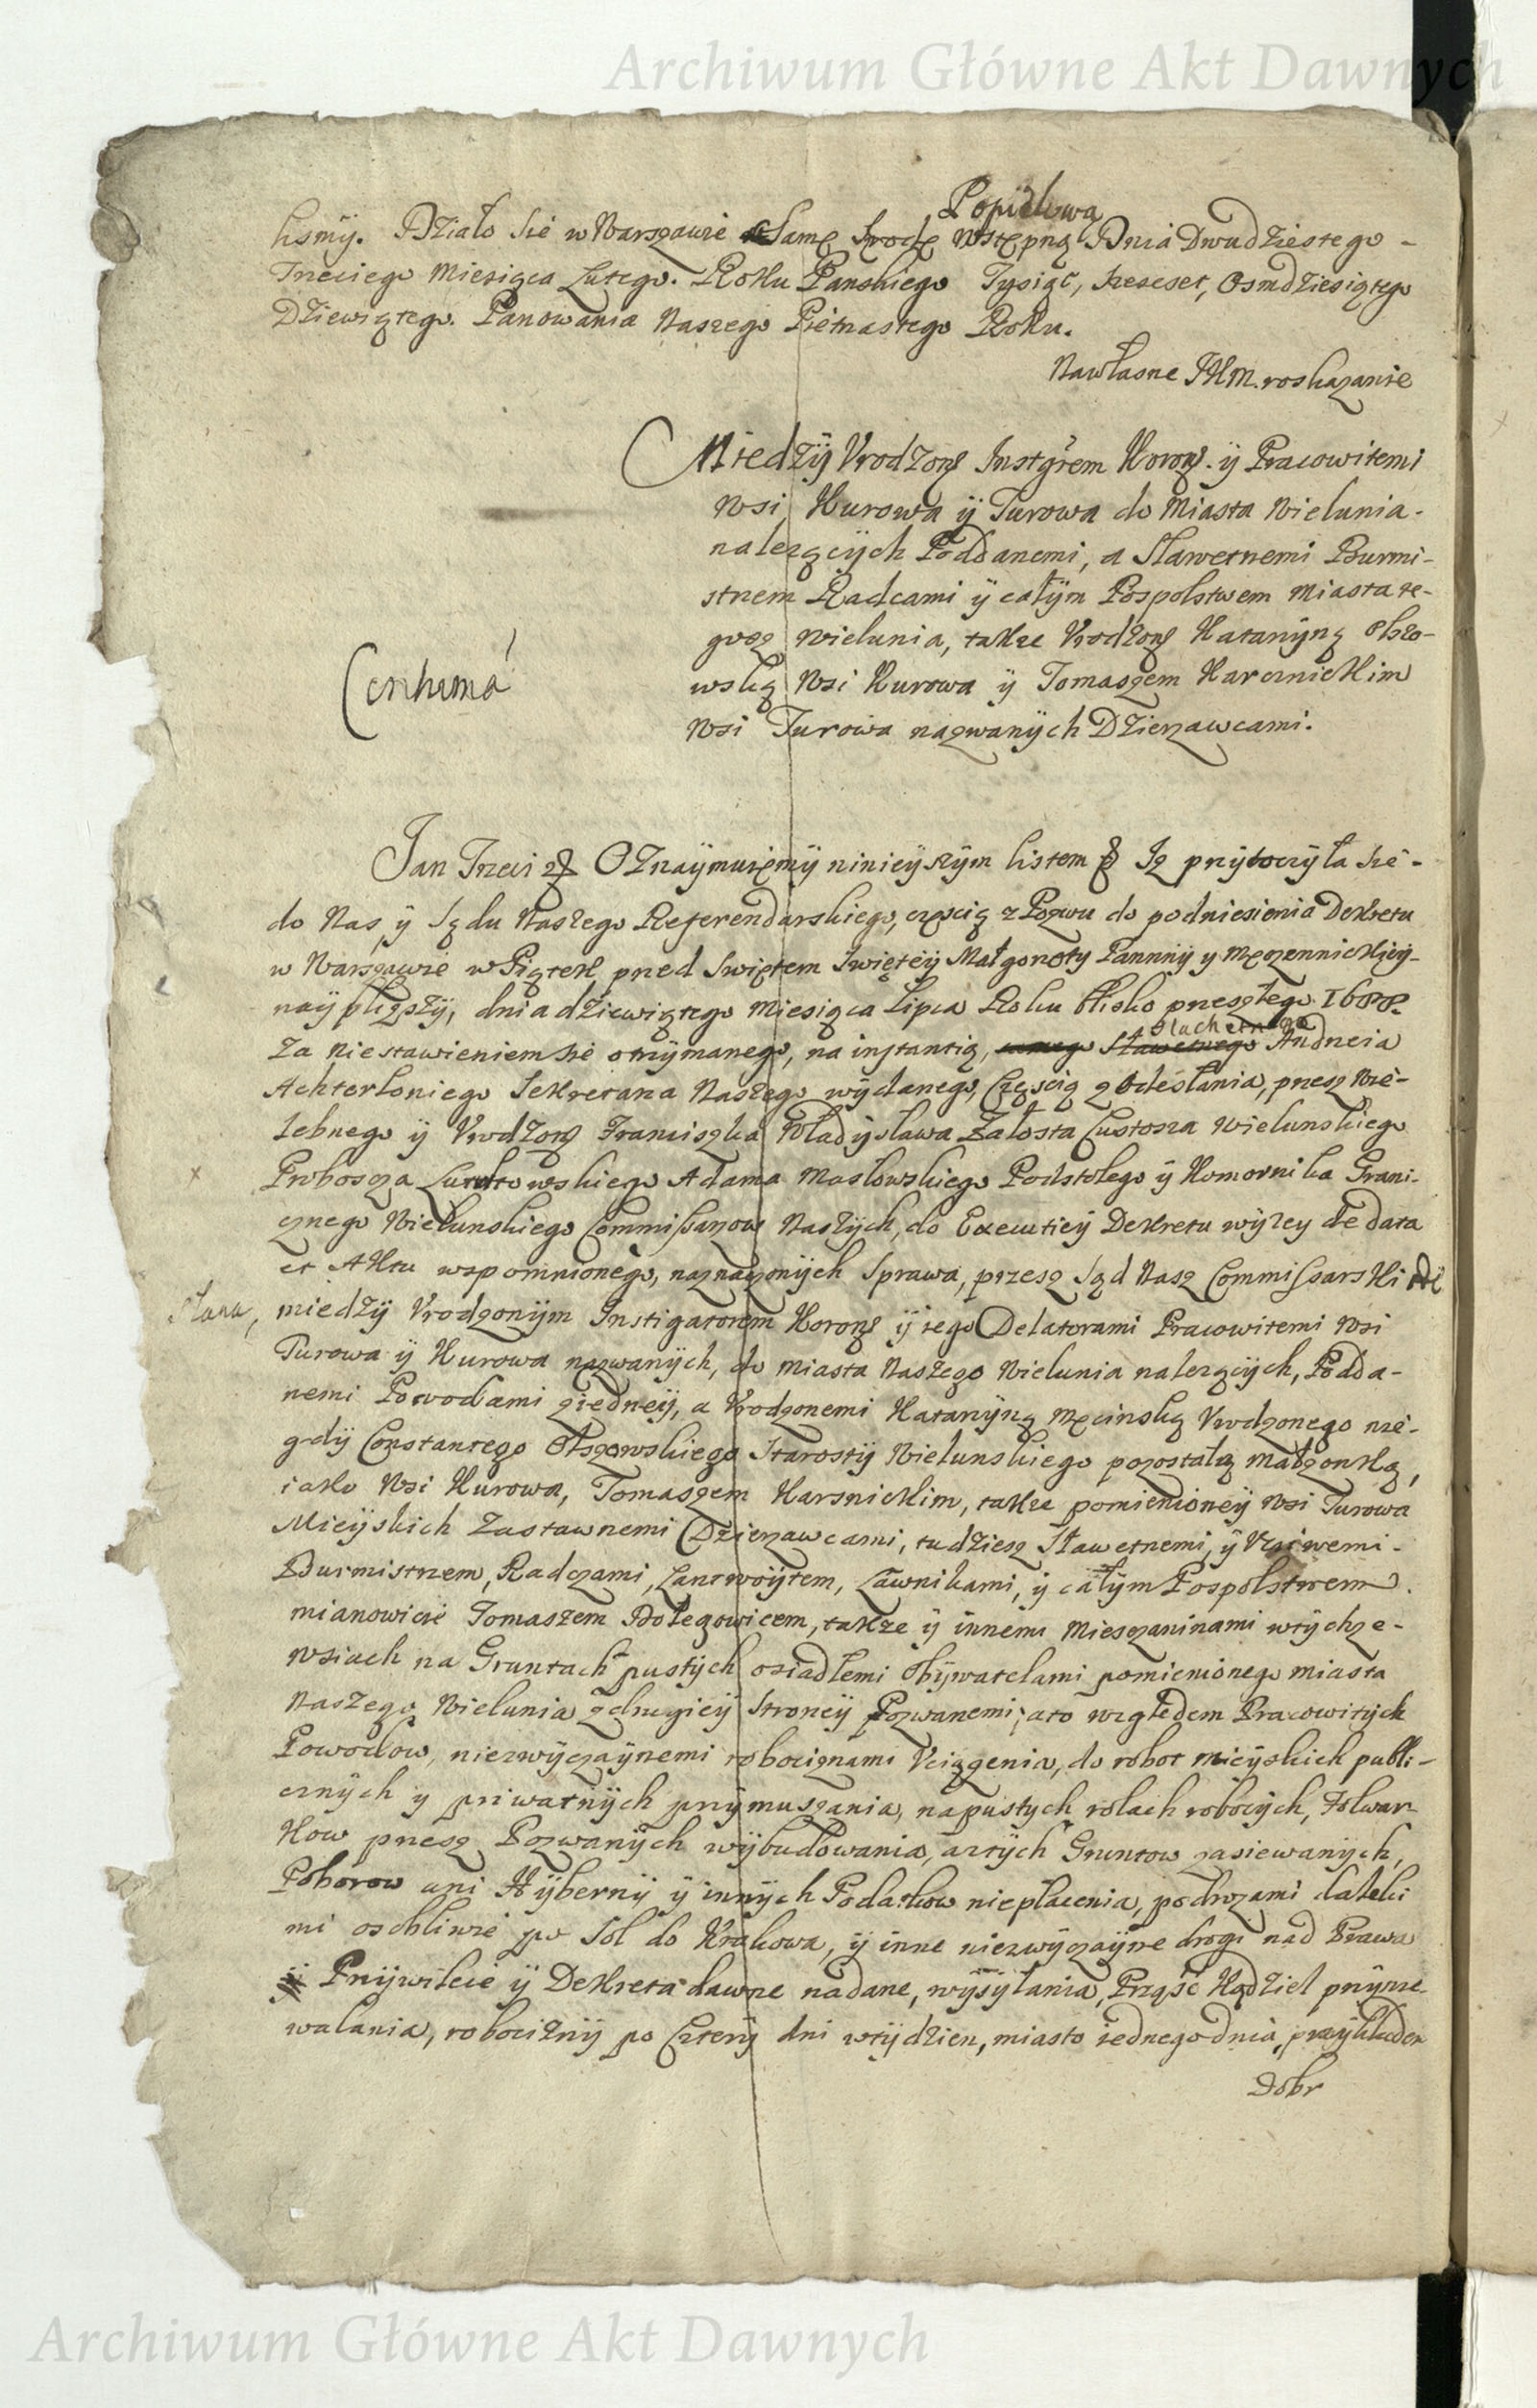 Archiwum Główne Akt Dawnych
Popielcową
lismÿ. Działo sie w Warszawie Samę Srodę Wstępną Dnia Dwudziestego -
Trzeciego Miesiąca Lutego. Roku Panskiego Tysiąc, szescset, Osmdziesiątego
Dziewiątego. Panowania Naszego Pietnastego Roku.
Nawłasne JKM. roskazanie
Miedzÿ Vrodzonÿ Instgrem Koronÿ. ÿ Pracowitemi
Wsi Kurowa ÿ Turowa do Miasta Wielunia -
nalezącÿch Poddanemi, a Sławetnemi Burmi-
strzem Radcami ÿ całÿm Pospolstwem Miasta te-
gosz Wielunia, takze Vrodzonÿ Katarzÿną Olszo-
wską Wsi Kurowa ÿ Tomaszem Karsnickim
Wsi Turowa nazwanÿch Dzierzawcami.
Jan Trzeci Oznaÿmuiemÿ ninieÿszÿm listem Iz przÿtoczÿła sie -
do Nas ÿ Sądu Naszego Referendarskiego, częscią z Pozwu do podniesienia Dekretu
w Warszawie w Piątek przed Swiętem Swięteÿ Małgorzaty Pannÿ y Męczennickieÿ
naÿblizszÿ, dnia dziewiątego Miesiąca Lipca Roku blisko przeszłego 1688.
Szlachetnego
Za niestawieniem sie otrzÿmanego, na instantią, Sławetnego Andrzeia
Achterloniego Sekretarza Naszego wÿdanego, Częscią z Odesłania, przesz Wie-
lebnego ÿ Vrodzonÿ Franciszka Władÿsława Załosta Custosza Wielunskiego
Proboszcza Adama Masłowskiego Podstolego ÿ Komornika Grani-
cznego Wielunskiego Commissarzow Naszÿch, do Executieÿ Dekretu wÿzey de data
et Aktu wspomnionego, naznaczonÿch Sprawa, przesz Sąd Nasz Commissarski ode
słana, miedzÿ Vrodzonÿm Instigatorem Koronÿ ÿ iego Delatorami Pracowitemi Wsi
Turowa ÿ Kurowa nazwanÿch, do Miasta Naszego Wielunia nalezącÿch, Podda-
nemi Powodami ziedneÿ, a Vrodzonemi Katarzÿną Męcinską Vrodzonego nie-
gdÿ Constantego Olszowskiego Starostÿ Wielunskiego pozostałą Małzonką,
iako Wsi Kurowa, Tomaszem Karsnickim, takze pomienioneÿ Wsi Turowa
Mieÿskich Zastawnemi Dzierzawcami, tudziesz Sławetnemi, ÿ Vczciwemi -
Burmistrzem, Radczami, Lantwoÿtem, Ławnikami, ÿ całÿm Pospolstwem
mianowicie Tomaszem Dołegowicem, takze ÿ innemi Miesczaninami wtÿchze -
Wsiach na Gruntach pustÿch osiadłemi Obÿwatelami pomienionego miasta
Naszego Wielunia zdrugieÿ stroneÿ Pozwanemi; ato względem Pracowitÿch
Powodow, niezwÿczaÿnemi robociznami Vciązenia, do robot mieÿskich publi-
cznÿch y priwatnÿch przÿmuszania, napustych rolach robocÿch, Folwar
kow przesz Pozwanÿch wÿbudowania, aztÿch Gruntow zasiewanÿch,
Poborow ani Hÿbernÿ ÿ innÿch Podatkow niepłacenia, podrozami daleki
mi osobliwie po Sol do Krakowa, ÿ inne niezwÿczaÿne drogi nad Prawa
Przÿwileie ÿ Dekreta dawne nadane, wÿsÿłania, Prząsc Kądziel przÿnie-
walania, robociznÿ po Czterÿ dni wtÿdzien, miasto iednegodnia, przÿkładem
Dobr
Archiwum Główne Akt Dawnych